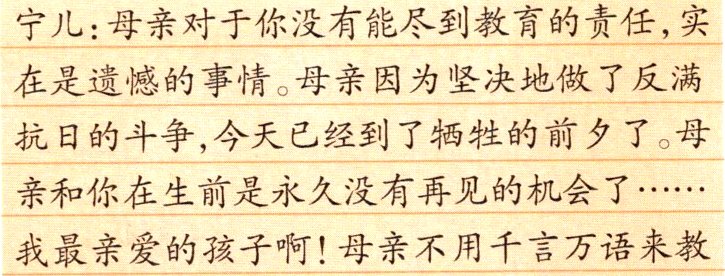 宁儿：母亲对于你没有能尽到教育的责任，实
在是遗憾的事情。母亲因为坚决地做了反满
抗日的斗争，今天已经到了牺牲的前夕了。母
亲和你在生前是永久没有再见的机会了……
我最亲爱的孩子啊！母亲不用千言万语来教